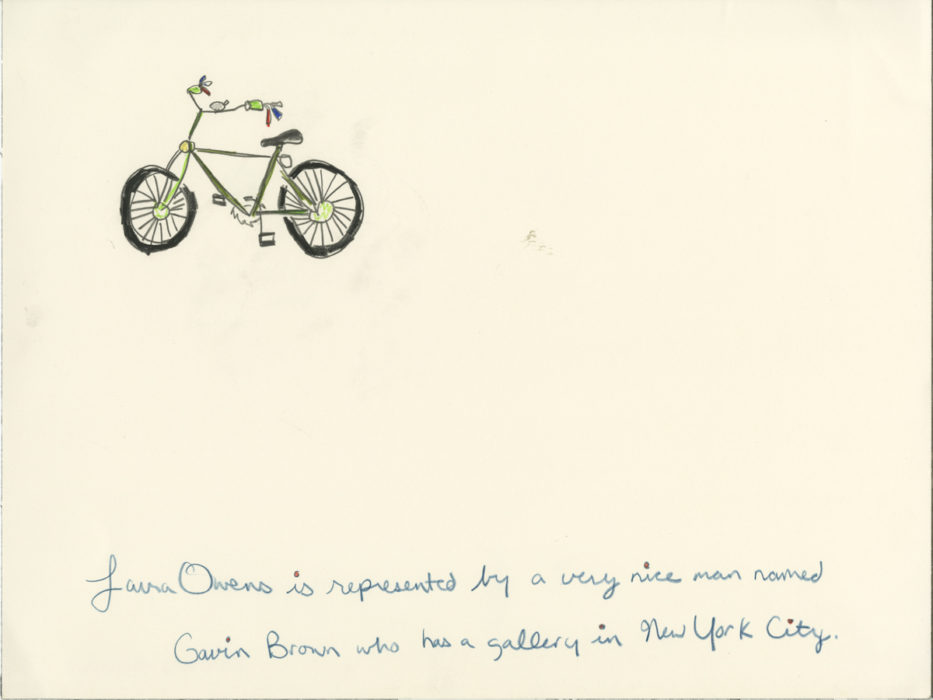 Laura Owens is represented by a very nice man named
Gavin Brown who has a gallery in New York City.